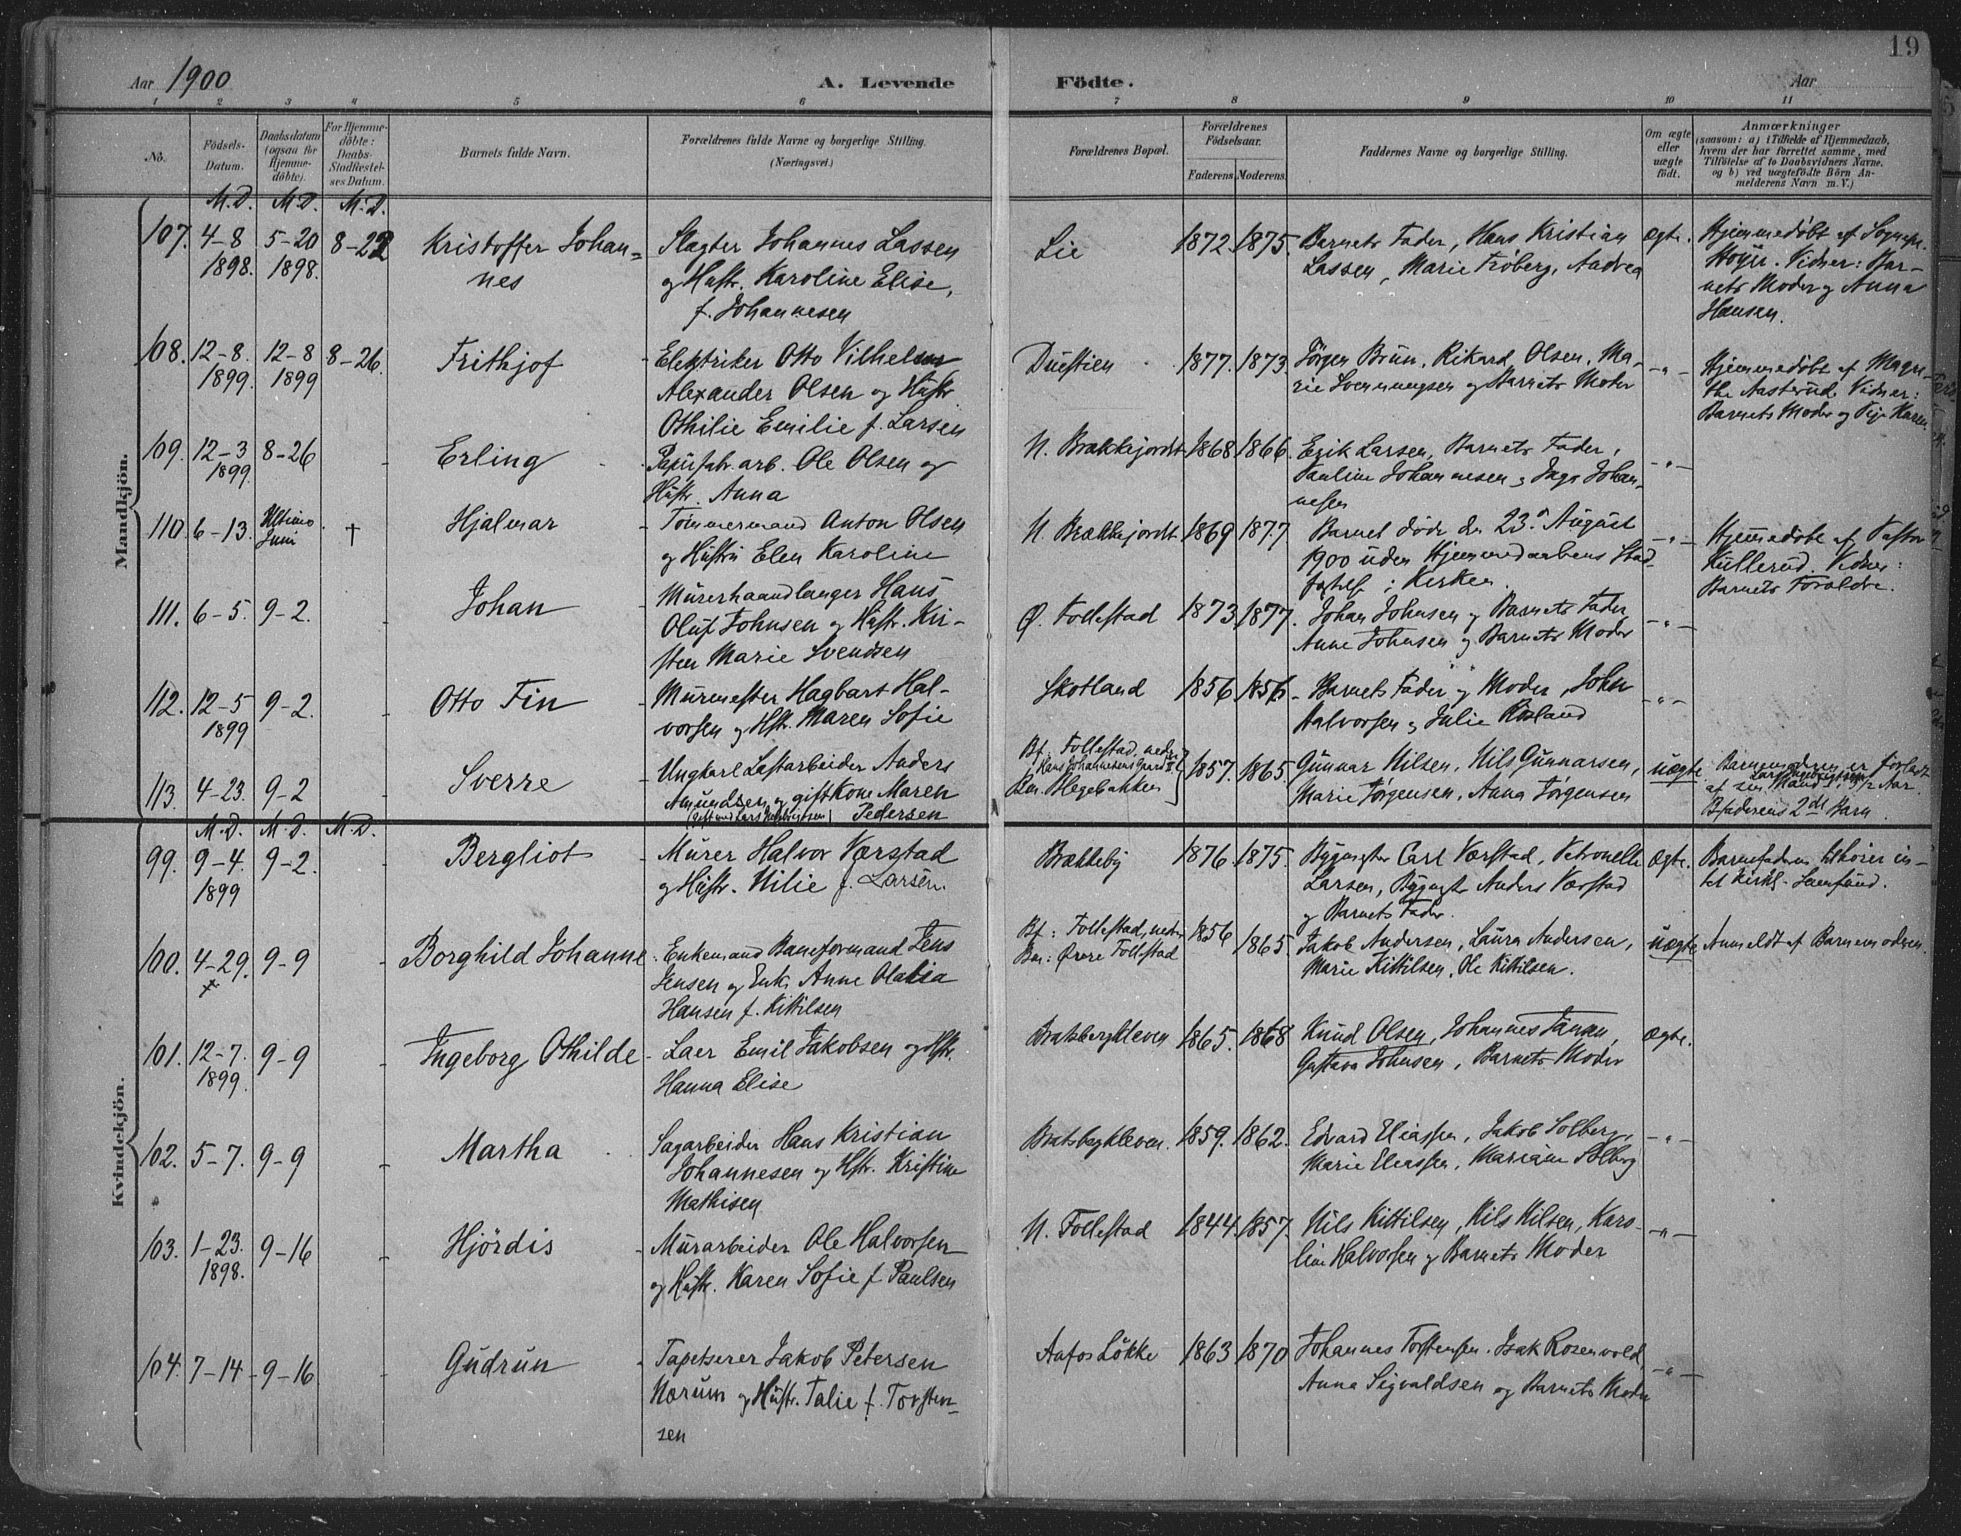 19
Aar 1900
A. Levende Födte.
Aar
1 2 3 4 5 6 7 8 9 10 11
No.
Födsels-Datum.
Daabsdatum (ogsaa for Hjemmedöbte).
For Hjemmedöbte: Daabs-Stadfæstelses Datum.
Barnets fulde Navn.
Forældrenes fulde Navne og borgerlige Stilling. (Næringsvei.)
Forældrenes Bopæl.
Forældrenes Födselsaar.
Faderens. Moderens.
Faddernes Navne og borgerlige Stilling.
Om ægte eller uægte födt.
Anmærkninger
(saasom: a) i Tilfælde af Hjemmedaab,
hvem der har forrettet samme, med
Tilföielse af to Daabsvidners Navne,
og b) ved uægtefödte Börn An-
melderens Navn m. V.)
Mandkjön.
M. D. M. D. M. D.
107. 4-8 1898. 5-20 1898. 8-22
Kristoffer Johan=
nes
Slagter Johannes Lassen
og Hustr. Karoline Elise,
f. Johannesen
Lie
1872. 1875.
Barnets Fader, Hans Kristian
Lassen, Marie Froberg, Andrea
Ægte.
Hjemmedøbt af Sognepr.
Höyn. Vidner: Bar-
nets Moder og Anna
Hansen.
108. 12-8. 1899. 12-8 1899 8-26.
Frithjof
Elektriker Otto Vilhelm
Alexander Olsen og Hustr.
Othilie Emilie f. Larsen
Duestien
1877. 1873.
Jörgen Brun, Rikard Olsen, Ma-
rie Svenningsen og Barnets Moder
-"-
Hjemmedöbt af Magre-
the Aasterud. Vidner:
Barnets Moder og Pige Karen
109. 12-3 1899. 8-26 -
Erling
Papirfabr.arb. Ole Olsen og
Hustr. Anna
N. Brækkejordet
1868 1866.
Erik Larsen, Barnets Fader,
Pauline Johannesen, Inga Johan-
nessen
-"-
110. 6-13. Ultimo Juni †
Hjalmar
Tömmermand Anton Olsen
og Hustru Elen Karoline
N. Brækkejordet
1869 1877
Barnet døde den 23. August
1900 uden Hjemmedaabens Stad-
fæstelse i Kirken.
-"-
Hjemmedøbt af Pastor
Kullerud. Vidner:
Barnets Forældre.
111. 6-5. 9-2. -
Johan
Murerhaandlanger Hans
Oluf Johnsen og Hustr. Kir-
sten Marie Svendsen
Ø. Follestad
1873 1877.
Johan Johnsen og Barnets Fader,
Anne Johnsen og Barnets Moder
-"-
112. 12-5 1899 9-2. -
Otto Fin
Murmester Hagbart Hal-
vorsen og Hstr. Maren Sofie
Skotland
1856 1856
Barnets Fader og Moder, John
Halvorsen og Julie Rösland
-"-
113. 4-23. 9-2 -
Sverre
Ungkarl Lastarbeider Anders
Amundsen og gift Kone Maren
Pedersen
Bf: Follestad, nedre
Hans Johannesens Gaard
Bm. Hegebakken
1857. 1865.
Gunnar Nilsen, Nils Gunnarsen,
Marie Jørgensen, Anna Jørgensen
uægte
Barnemoderen er forladt
af sin Mand
Bfaderens 2det Barn
Kvindekjön.
M. D. M. D. M. D.
99. 9-4. 1899 9-2. -
Bergliot
Murer Halvor Værstad
og Hustr. Nilie f. Larsen.
Brækkeby
1876. 1875.
Bygmester Carl Værstad, Petronelle
Larsen, Bygmstr Anders Værstad
og Barnets Fader.
Ægte.
Barnefaderen tilhörer in-
tet kirkl. Samfund.
100. 4-29. 9-9 -
Borghild Johanne
Enkemand Baneformand Jens
Jensen og Enke Anne Olalia
Hansen f. Kittilsen
Bf: Follestad, nedre
Bm: Øvre Follestad
1856 1865.
Jakob Andersen, Laura Andersen,
Marie Kittilsen, Ole Kittilsen.
uægte
Anmeldt af Barnemoderen
101. 12-7. 1899. 9-9 -
Ingeborg Othilde
Laer Emil Jakobsen og Hstr.
Hanna Elise
Bratsbergkleven
1865. 1868
Knud Olsen, Johannes Tanan,
Gustava Johnsen, Barnets Moder
Ægte.
102. 5-7. 9-9 -
Martha
Sagarbeider Hans Kristian
Johannesen og Hstr. Kristine
Mathisen
Bratsbergkleven
1859. 1862.
Edvard Eliassen, Jakob Solberg,
Marie Eliassen, Mariane Solberg
-"-
103. 1-23. 1898. 9-16 -
Hjördis
Murarbeider Ole Halvorsen
og Hustr. Karen Sofie f. Paulsen
N. Follestad
1844. 1857.
Nils Kittilsen, Nils Nilsen, Karo-
line Halvorsen og Barnets Moder
-"-
104. 7-14 9-16 -
Gudrun
Tapetserer Jakob Petersen
Nærum og Hustr. Talie f. Torsten-
sen
Aafos Løkke
1863 1870
Johannes Torstensen, Isak Rosenvold,
Anna Sigvaldsen og Barnets Moder
-"-